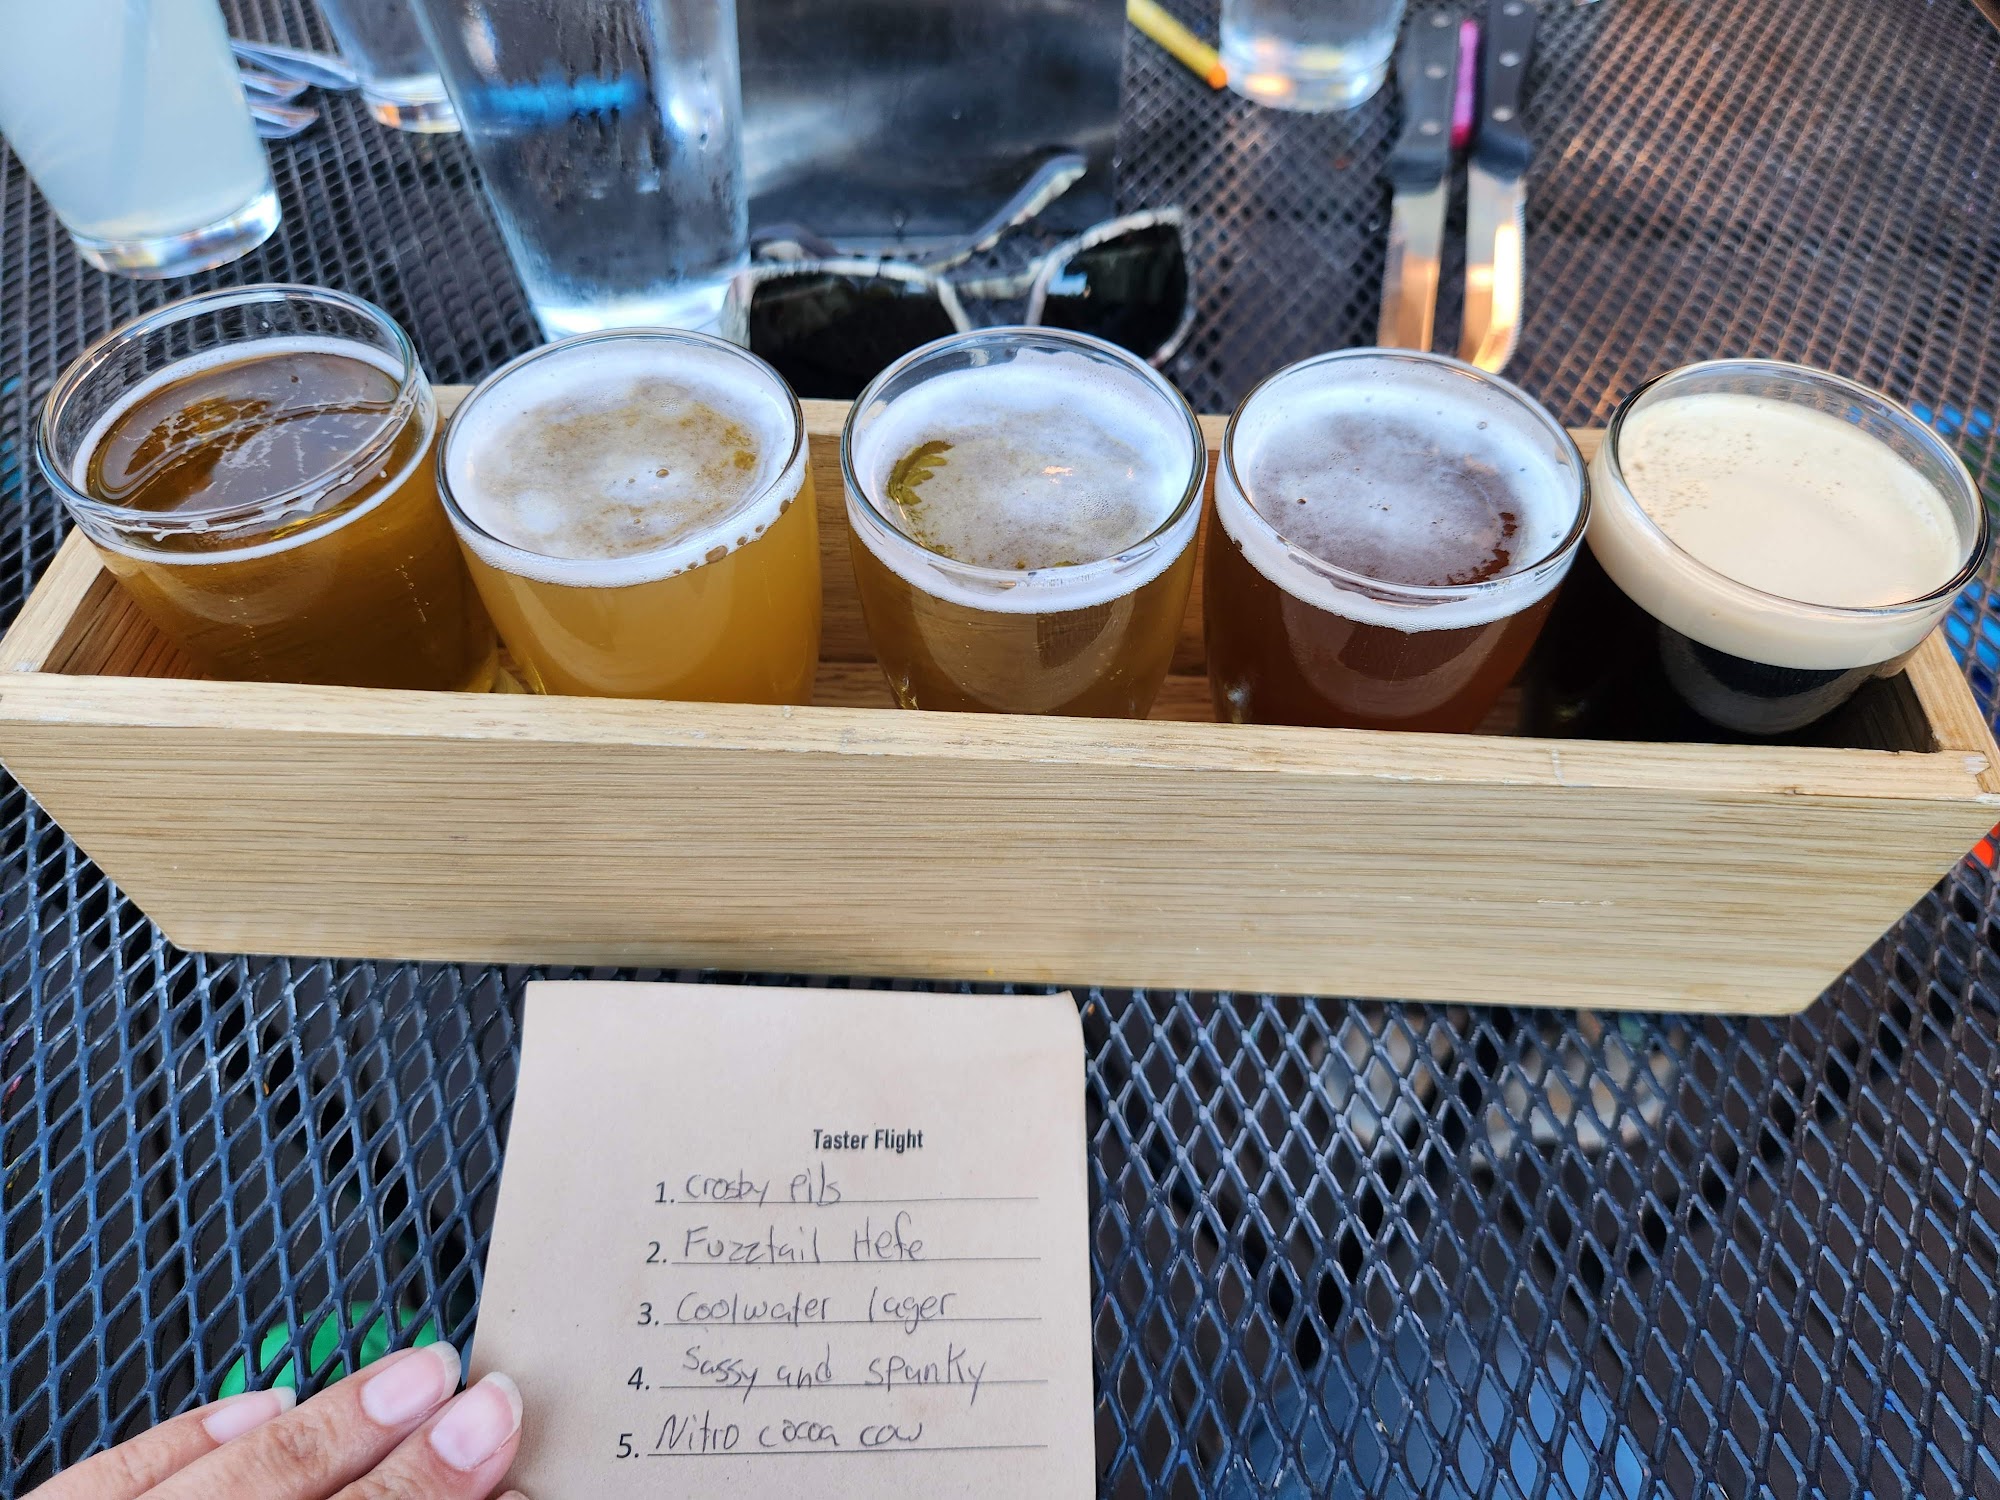 Taster Flight
1. Crosby Pils
2. Fuzztail Hefe
3. Coolwater lager
4. Sassy and spanky
5. Nitro cocoa cow